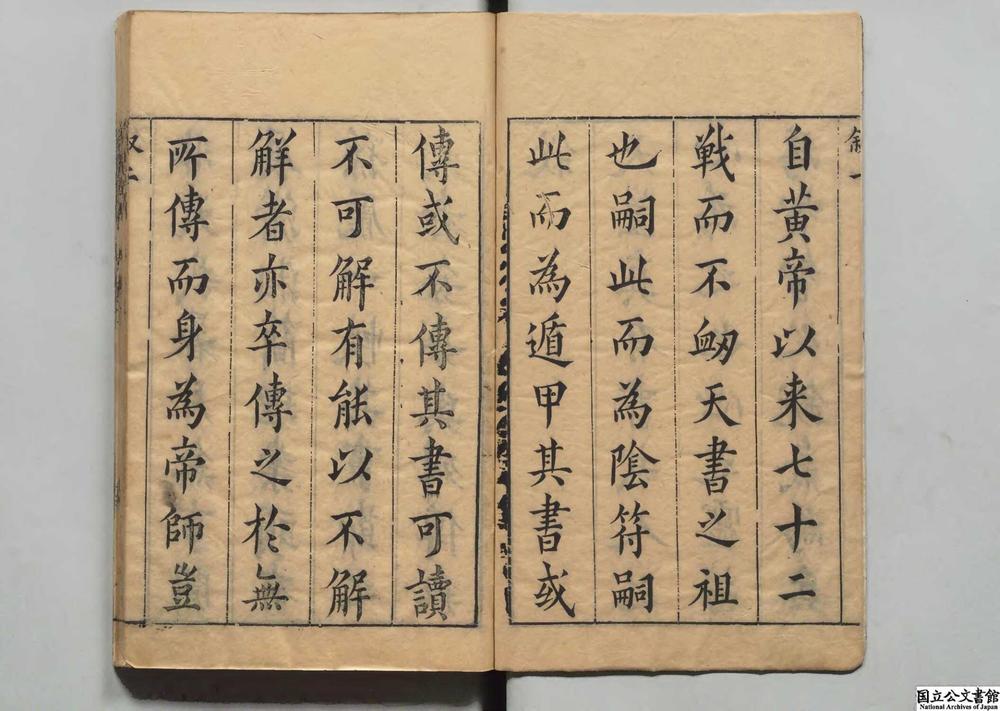 自黄帝以来七十二
戦而不衂天書之祖
也嗣此而為陰符嗣
此而為遁甲其書或
傳或不傳其書可讀
不可解有能以不解
解者亦卒傳之於無
所傳而身為帝師豈
国立公文書館
National Archives of Japan